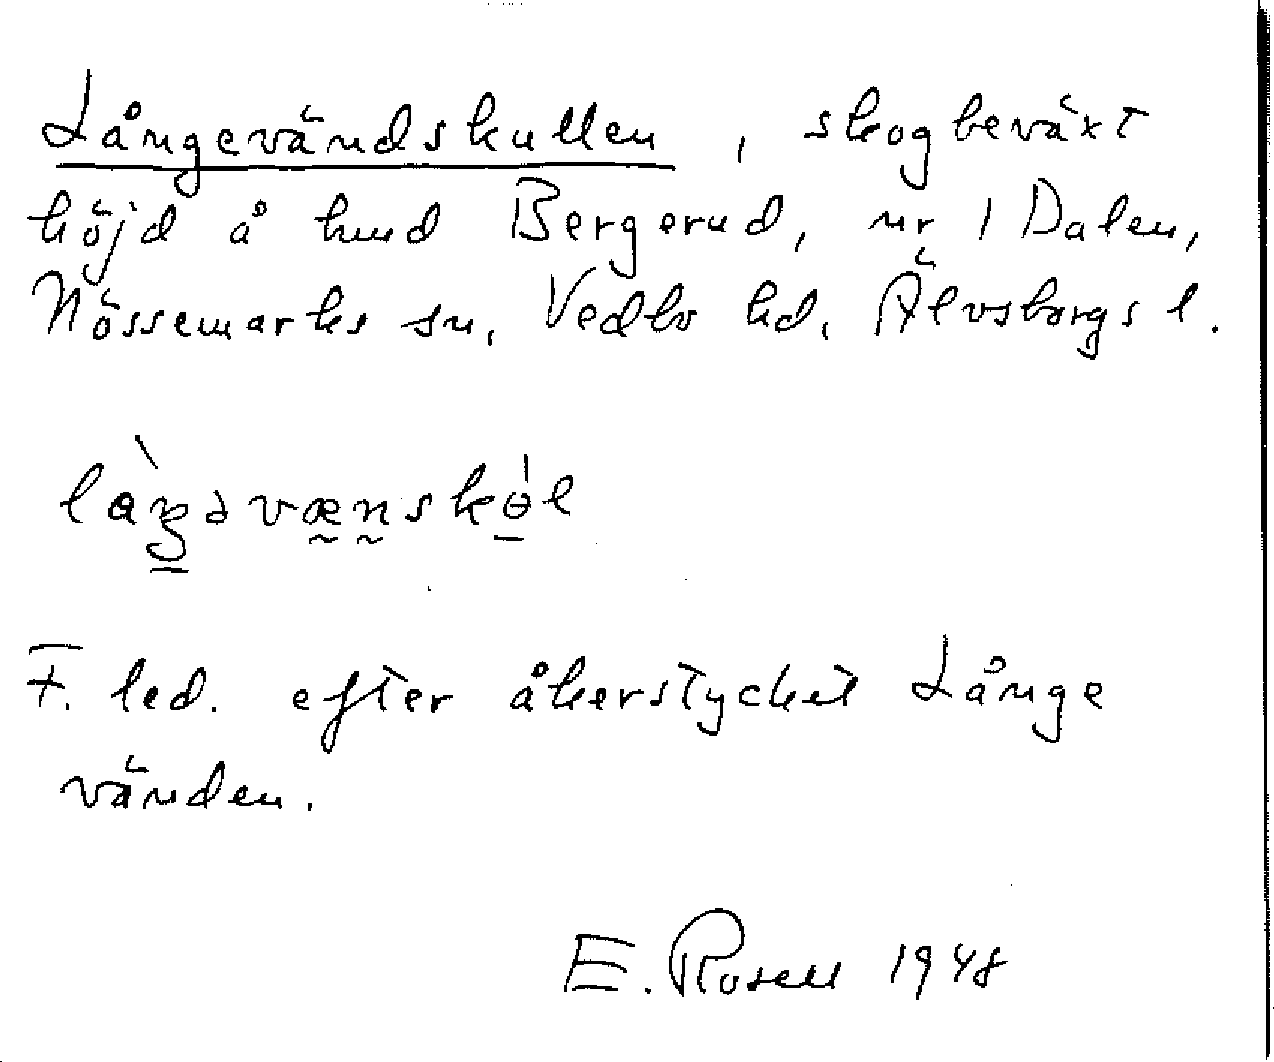 Långevändskullen, skogbeväxt
höjd å hmd Bergerud, nr 1 Dalen,
Nössemarks sn, Vedbo hd, Älvsborgs l.
F. led. efter åkerstycket Långe
vänden.
E. Rosell 1948